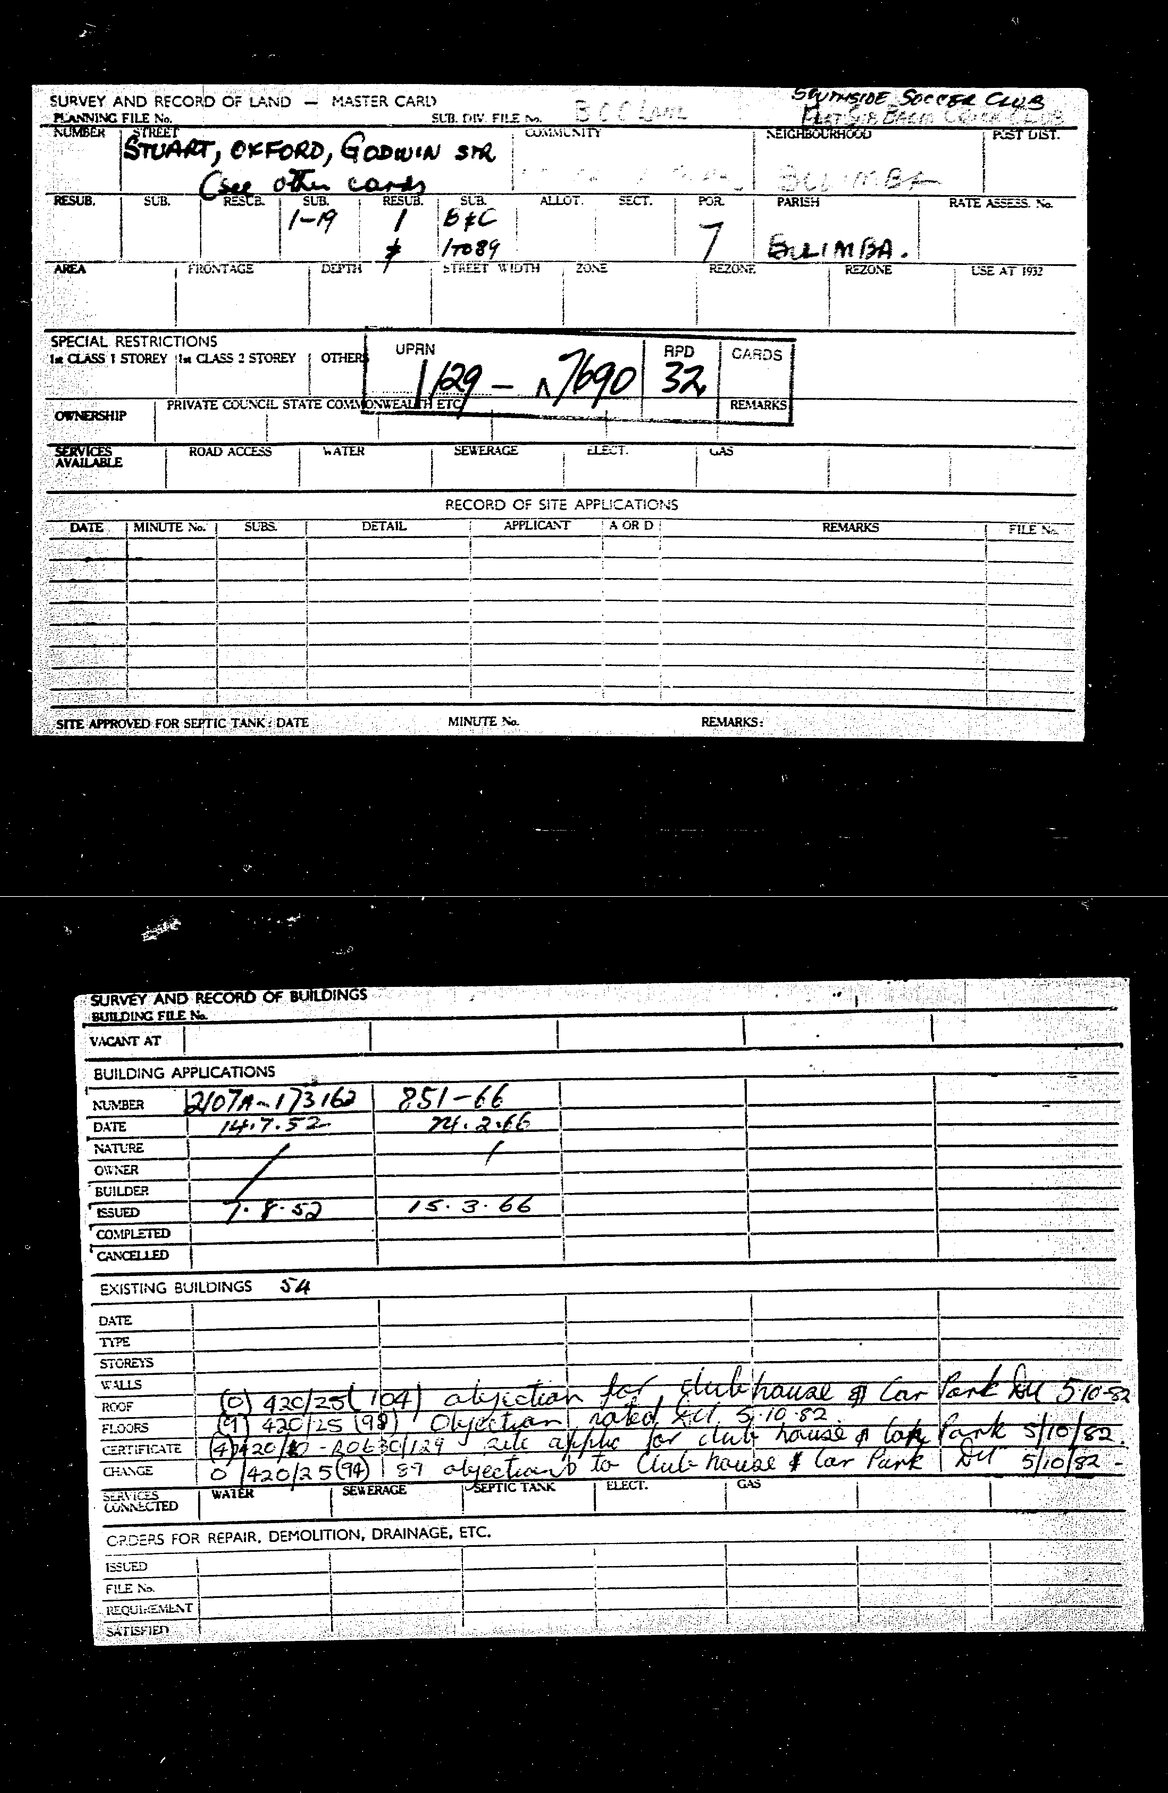 SURVEY AND RECORD OF LAND — MASTER CARD
SOUTHSIDE SOCCER CLUB
PLANNING FILE No. SUB. DIV. FILE No. BCC LAND
NUMBER STREET COMMUNITY NEIGHBOURHOOD POST DIST.
STUART, OXFORD, GODWIN STR
(see other cards BULIMBA
RESUB. SUB. RESUB. SUB. RESUB. SUB. ALLOT. SECT. POR. PARISH RATE ASSESS. No.
1-19 1 B&C 7 BULIMBA.
1 TO 89
AREA FRONTAGE DEPTH STREET WIDTH ZONE REZONE REZONE USE AT 1932
SPECIAL RESTRICTIONS
1st CLASS 1 STOREY 1st CLASS 2 STOREY OTHERS UPRN RPD CARDS
1129 - 7690 32
OWNERSHIP PRIVATE COUNCIL STATE COMMONWEALTH ETC REMARKS
SERVICES AVAILABLE ROAD ACCESS WATER SEWERAGE ELECT. GAS
RECORD OF SITE APPLICATIONS
DATE MINUTE No. SUBS. DETAIL APPLICANT A OR D REMARKS FILE No.
SITE APPROVED FOR SEPTIC TANK: DATE MINUTE No. REMARKS:
SURVEY AND RECORD OF BUILDINGS
BUILDING FILE No.
VACANT AT
BUILDING APPLICATIONS
NUMBER 2107A-173162 851-66
DATE 14.7.52 24.2.66
NATURE
OWNER
BUILDER
ISSUED 7.8.52 15.3.66
COMPLETED
CANCELLED
EXISTING BUILDINGS 54
DATE
TYPE
STOREYS
WALLS
ROOF (0) 420/25(104) objection for clubhouse & Car Park DU 5-10-82
FLOORS (9) 420/25 (98) Objection noted DU 5-10-82
CERTIFICATE (4) 420/ site applic for club house & Car Park 5/10/82.
CHANGE 0 420/25(94) 89 objections to Club house & Car Park DU 5/10/82 -
SERVICES CONNECTED WATER SEWERAGE SEPTIC TANK ELECT. GAS
ORDERS FOR REPAIR, DEMOLITION, DRAINAGE, ETC.
ISSUED
FILE No.
REQUIREMENT
SATISFIED